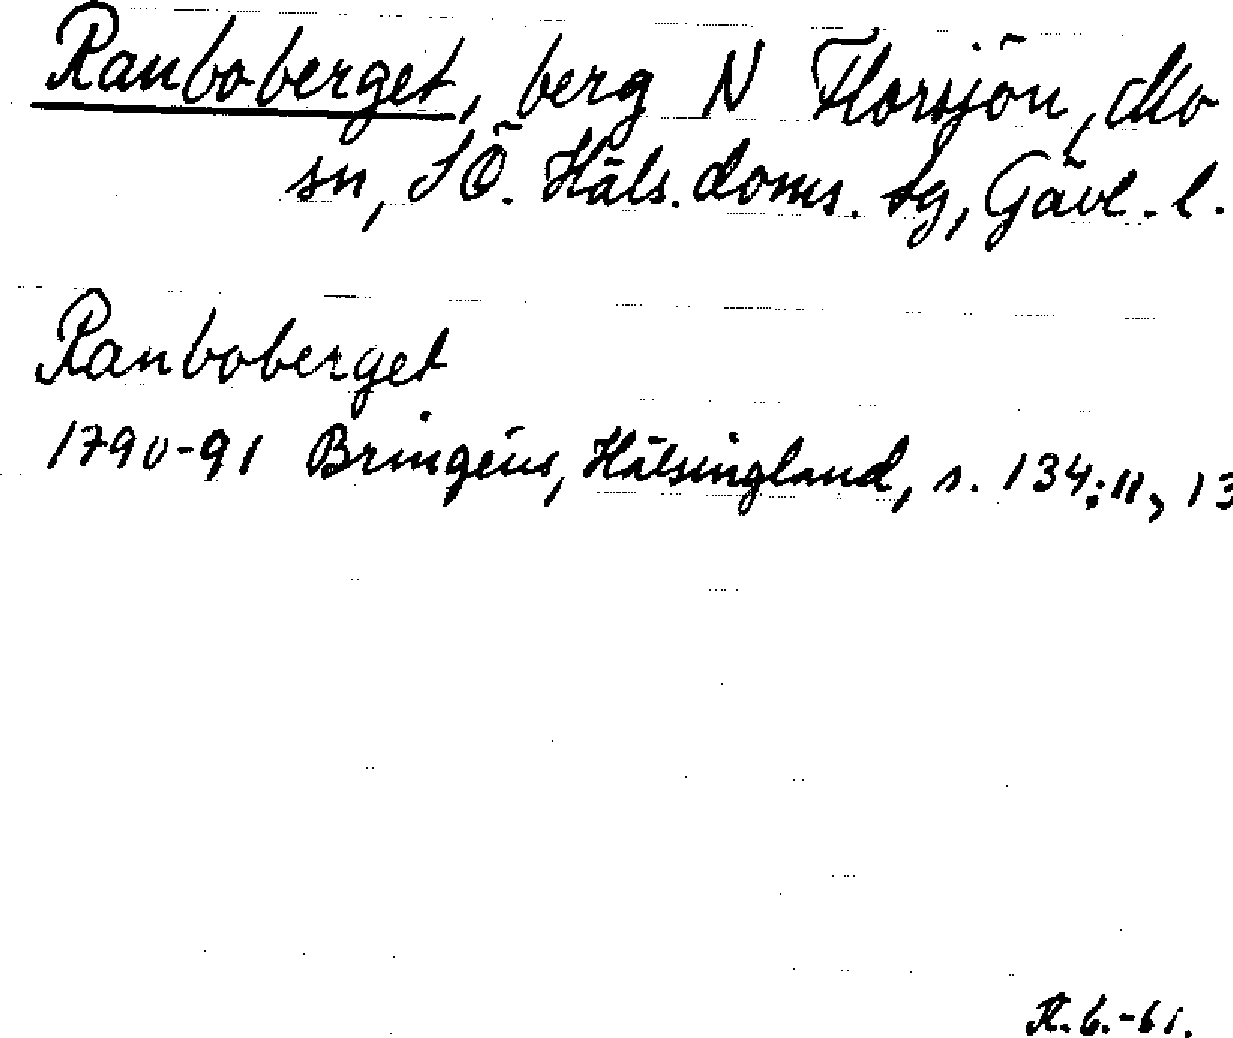 Ranboberget, berg N Florsjön, Mo
sn, SÖ. Häls. doms. tg, Gävl. l.
Ranboberget
1790-91 Bringéus, Hälsingland, s. 134:11, 13
R.b.-61.